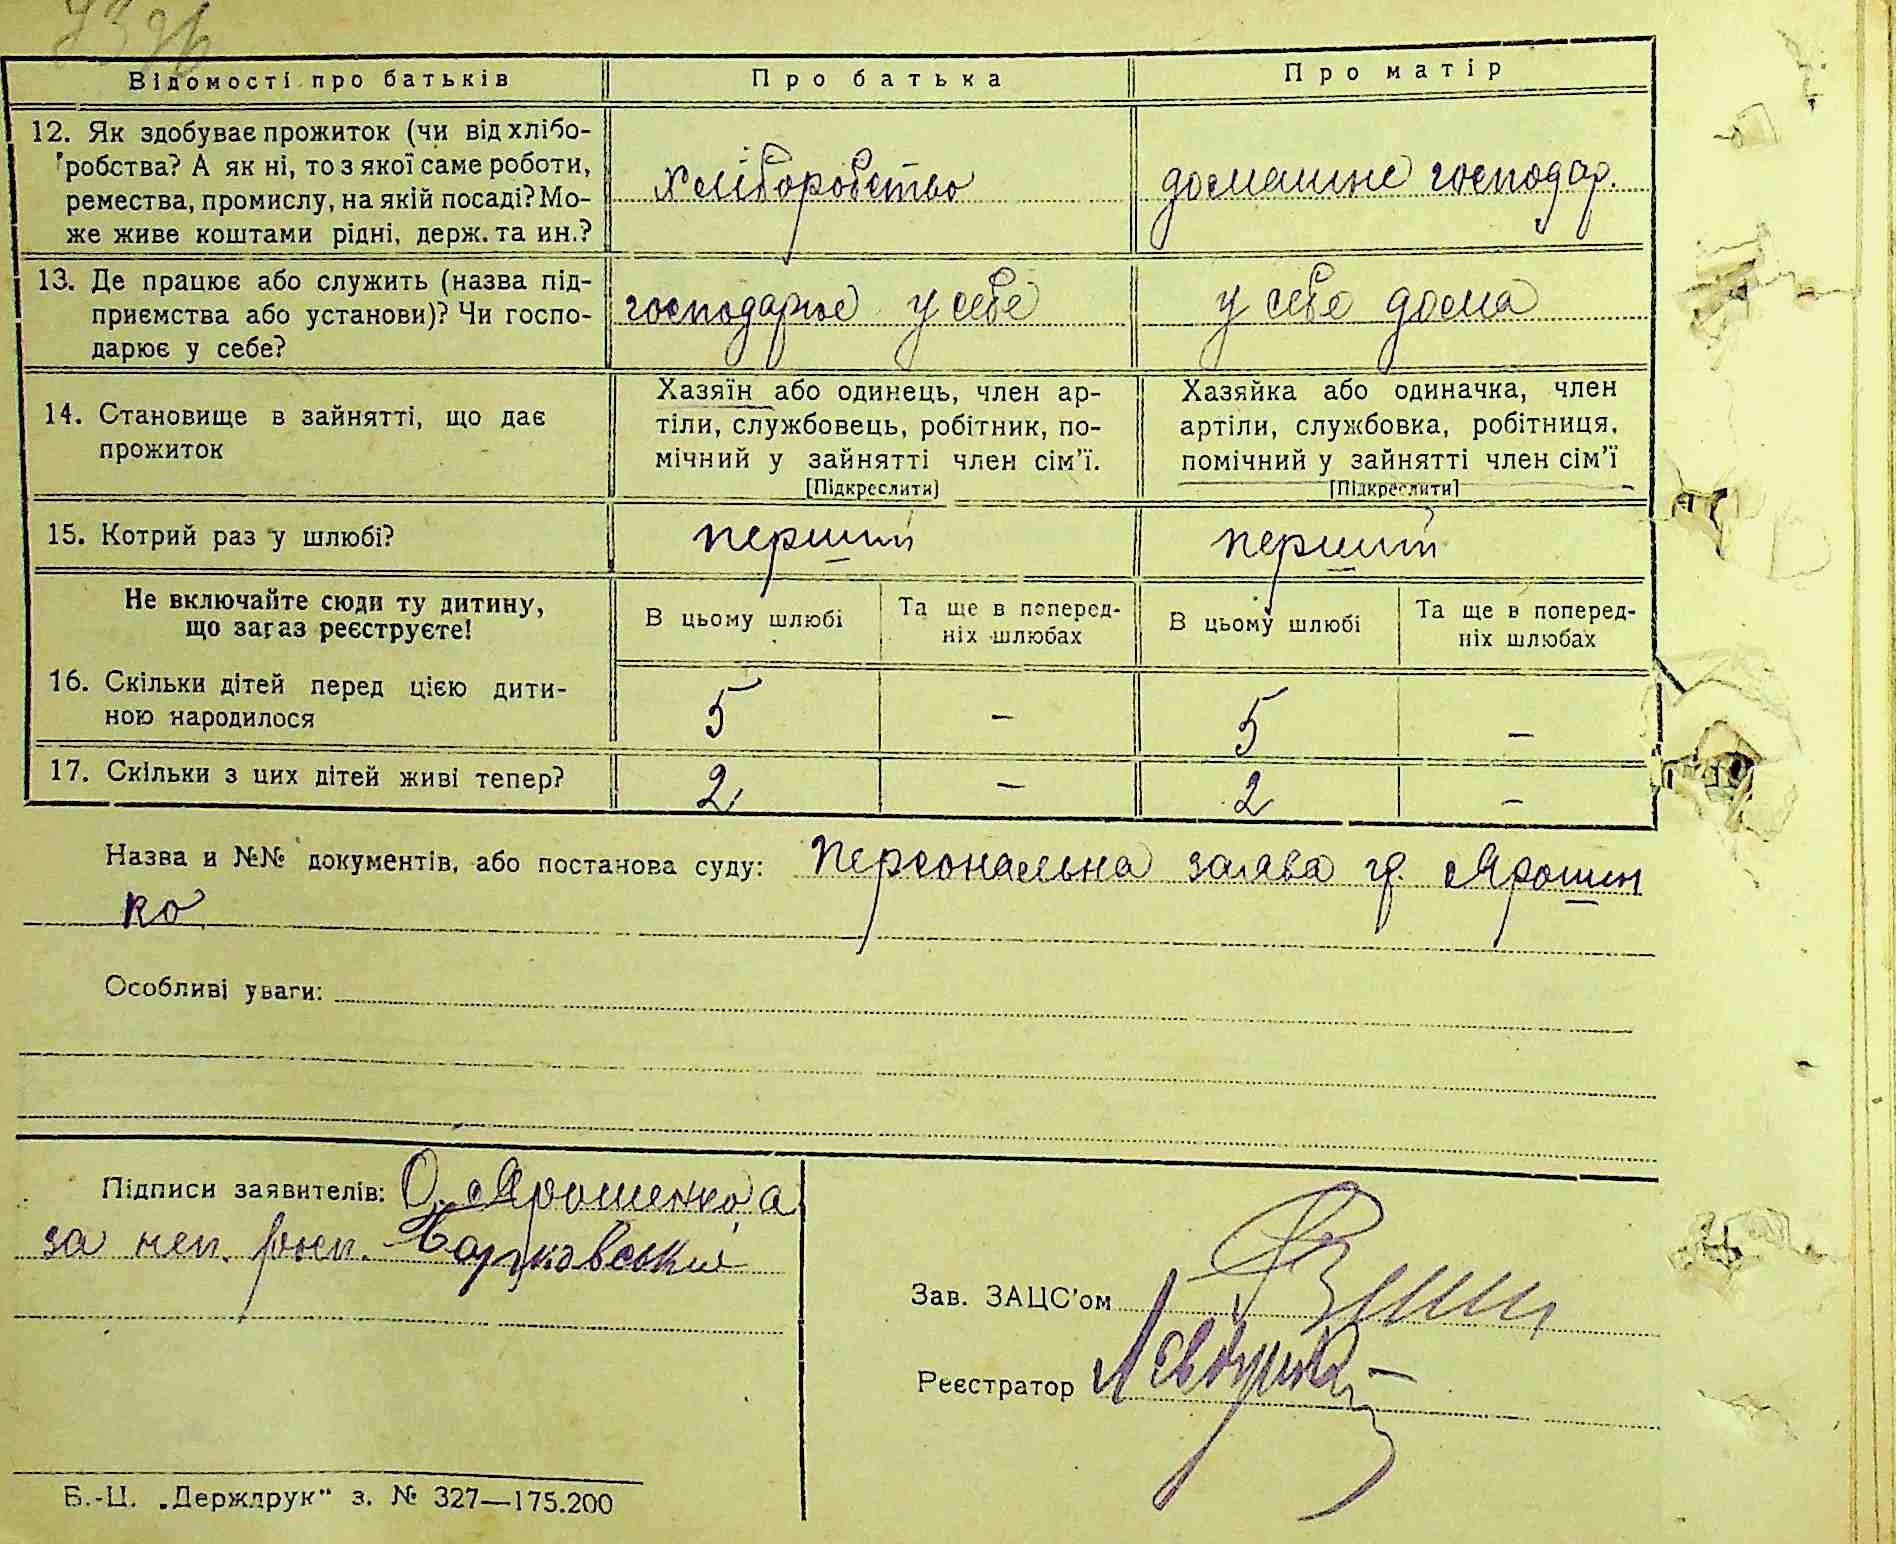 Відомості про батьків Про батька Про матір
12. Як здобуває прожиток (чи від хлібо-
робства? А як ні, то з якої саме роботи,
ремества, промислу, на якій посаді? Мо-
же живе коштами рідні, держ. та ин.?
хліборобство
домашнє господар.
13. Де працює або служить (назва під-
приємства або установи)? Чи госпо-
дарює у себе?
господарює у себе
у себе дома
14. Становище в зайнятті, що дає
прожиток
Хазяїн або одинець, член ар-
тіли, службовець, робітник, по-
мічний у зайнятті член сім'ї.
[Підкреслити]
Хазяйка або одиначка, член
артіли, службовка, робітниця,
помічний у зайнятті член сім'ї
[Підкреслити]
15. Котрий раз у шлюбі? перший перший
Не включайте сюди ту дитину,
що зараз реєструєте!
В цьому шлюбі
Та ще в поперед-
ніх шлюбах
В цьому шлюбі
Та ще в поперед-
ніх шлюбах
16. Скільки дітей перед цією дити-
ною народилося
5 – 5 –
17. Скільки з цих дітей живі тепер? 2 – 2 –
Назва и №№ документів, або постанова суду: Персональна заява гр. Ярошен
ко
Особливі уваги:
Підписи заявителів: О. Ярошенко а
за неп. росп.
Зав. ЗАЦС'ом
Реєстратор
Б.-Ц. „Держдрук" з. № 327—175.200